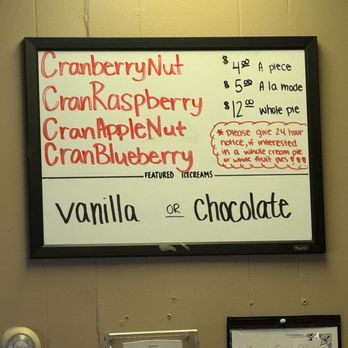 CranberryNut
CranRaspberry
CranAppleNut
CranBlueberry
$4.00 A piece
$5.00 A la mode
$12.00 whole pie
* please give 24 hour
notice, if interested
in a whole cream pie
or whole fruit pies!!!!
FEATURED ICECREAMS
vanilla OR Chocolate